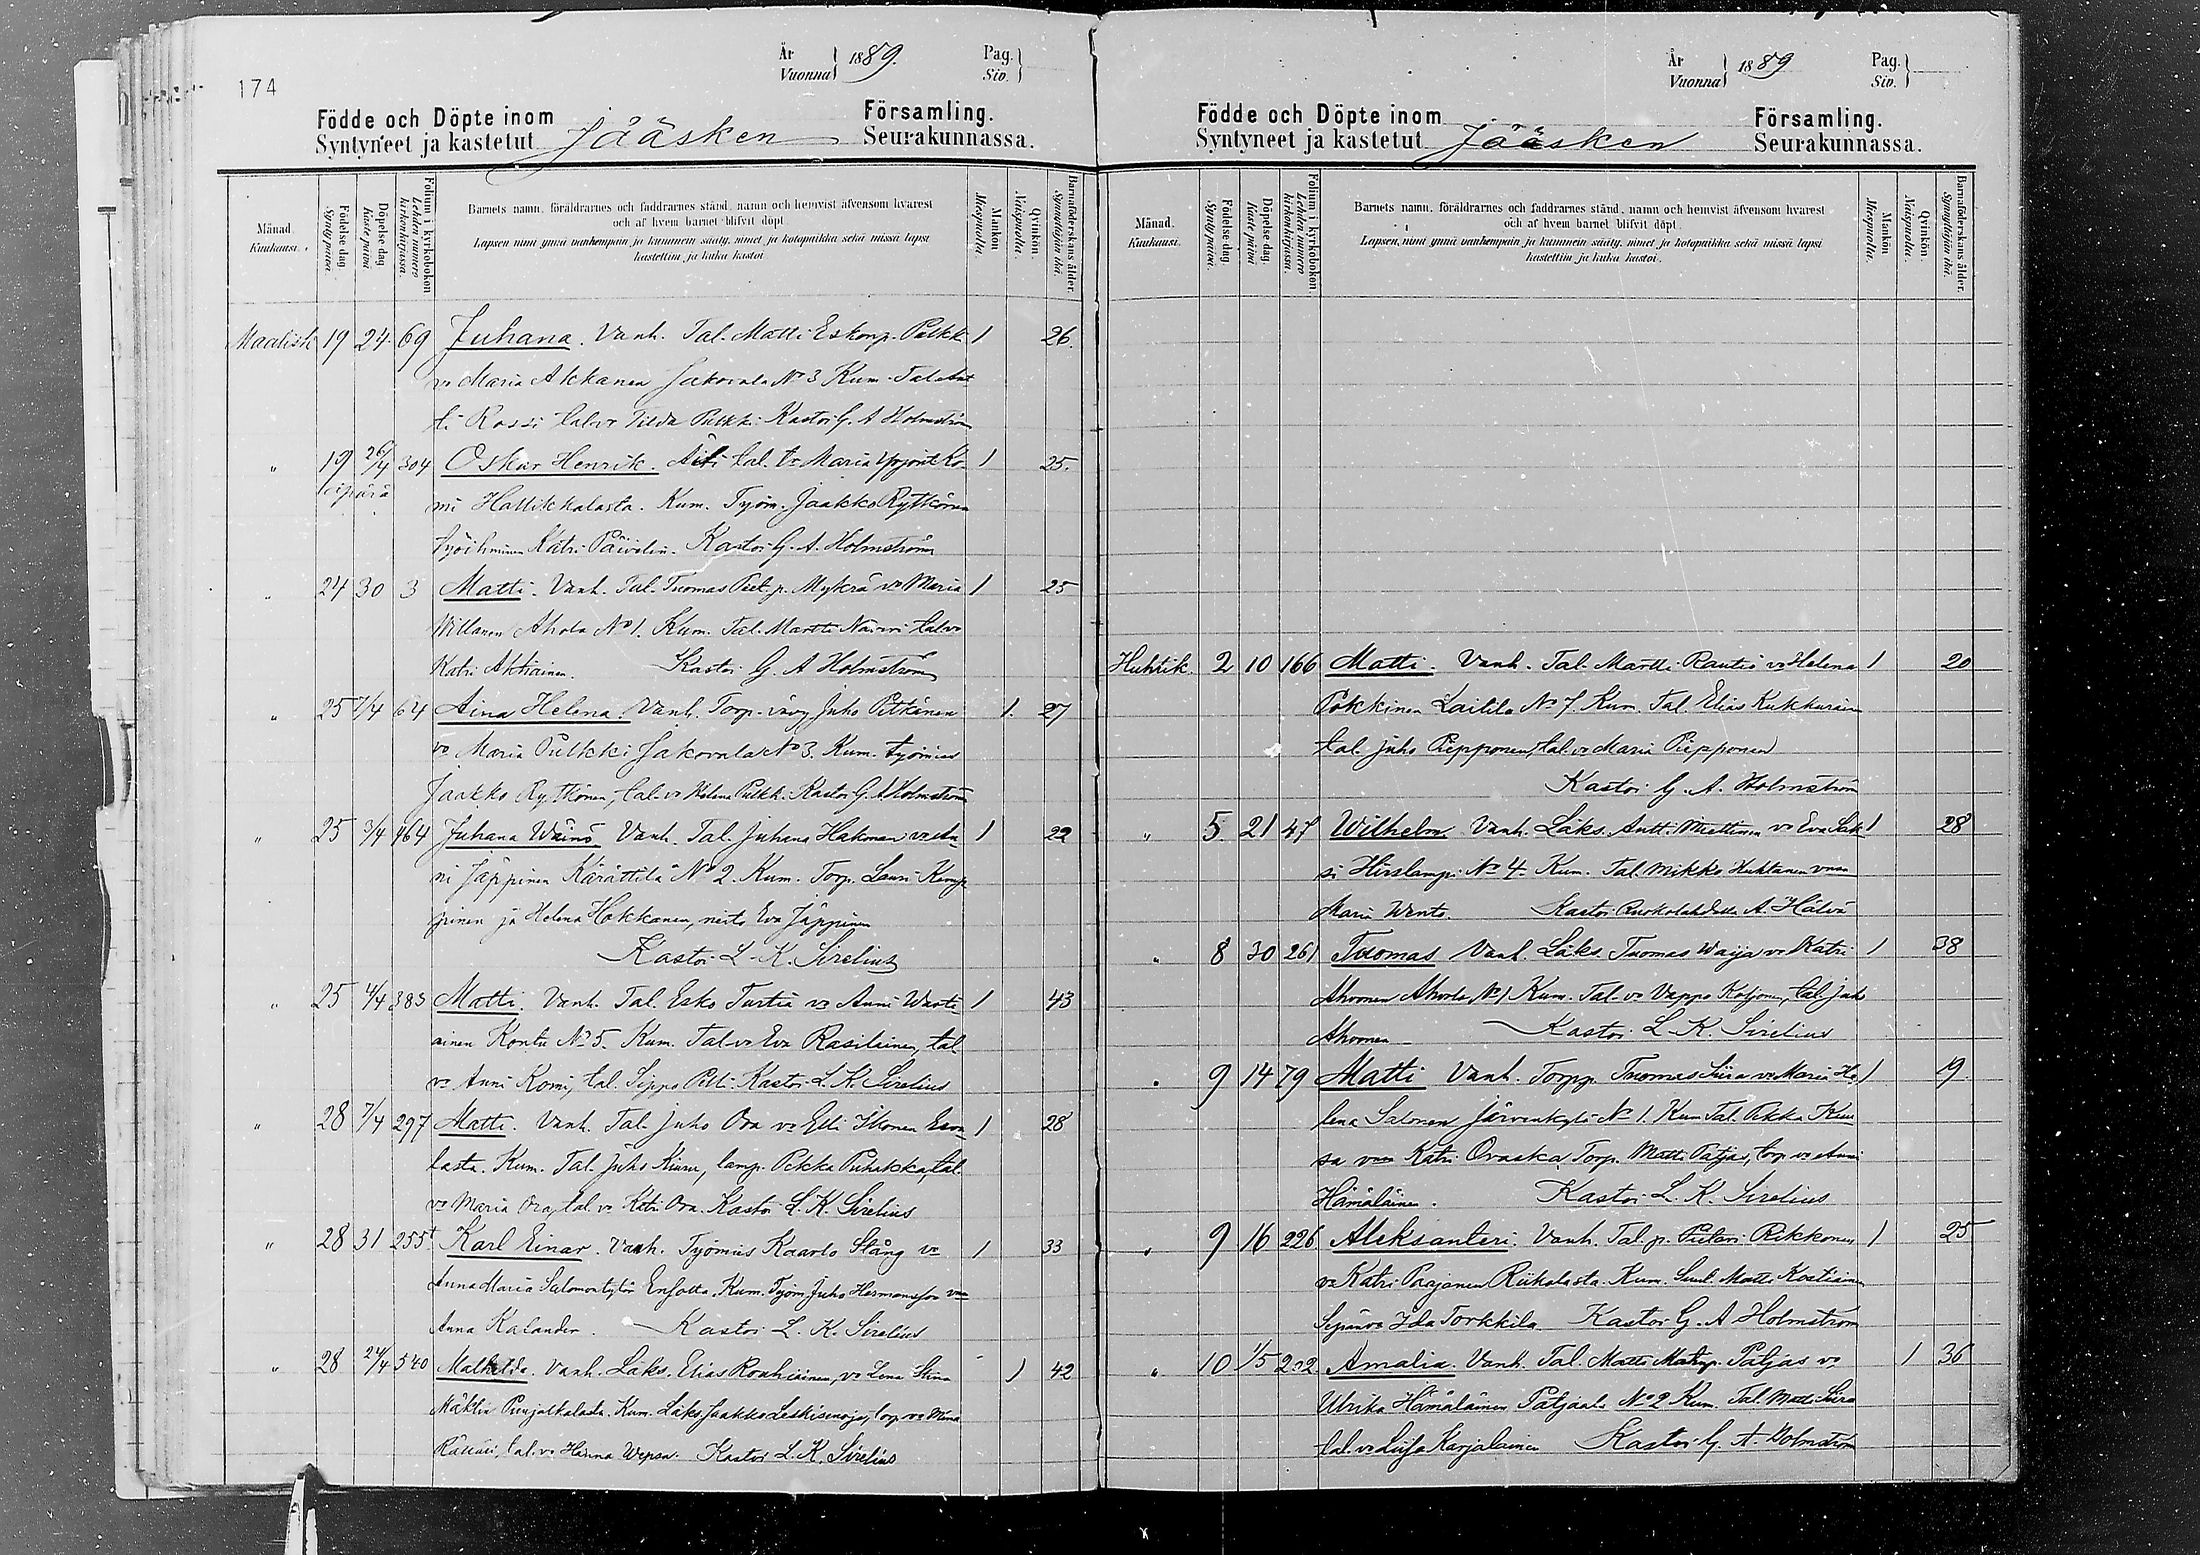 174
År
Vuonna 1889.
Pag.
Siv.
Födde och Döpte inom
Syntyneet ja kastetut Jääsken
Församling.
Seurakunnassa.
Månad.
Kuukausi.
Födelse dag.
Synty päivä.
Döpelse dag.
Kaste päivä
Folium i kyrkoboken
Lehden numero
kirkonkirjassa.
Barnets namn, föräldrarnes och faddrarnes stånd, namn och hemvist äfvensom hvarest
och af hvem barnet blifvit döpt.
Lapsen nimi ynnä vanhempain ja kummein sääty, nimet ja kotopaikka sekä missä lapsi
kastettiin ja kuka kastoi.
Mankön
Miespuolta.
Qvinkön.
Naispuolta.
Barnaföderskans ålder.
Synnyttäjän ikä.
Maalisk 19 24 69 Juhana. Vanh. Tal. Matti Eskonp. Pulkk 1 26.
vo Maria Akkanen Jakovala No 3 Kum. Tal. Ant
ti Rossi tal. vo Hilda Pulkki Kastoi G. A Holmström
" 19 26/4 304 Oskar Henrik. Äiti tal. tr Maria Yrjönt. Ko 1 25.
ni Hallikkalasta. Kum. Työm. Jaakko Rytkönen
työihminen Katri Päivölin. Kastoi G. A. Holmström
" 24 30 3 Matti. Vanh. Tal. Tuomas Piet. p. Mykrä vo Maria 1 25
Willanen Ahola No 1. Kum. Tal. Martti tal. vo
Katri Ahtiainen. Kastoi G. A Holmström
" 25 7/4 64 Aina Helena. Vanh. Torp. vävy Juho Pitkänen 1. 27
vo Maria Pulkki Jakovala No 3. Kum. työmies
Jaakko Rytkönen, tal. vo Helena Pulkk. Kastoi G. A Holmström
" 25 3/4 464 Juhana Wäinö. Vanh. Tal. Juhana Hakman vo An 1 22
ni Jäppinen Kärättilä No 2. Kum. Torp. Lauri Kemp
pinen ja Helena Hakkanen, neito Eva Jäppinen
Kastoi L. K. Sirelius
" 25 4/4 383 Matti. Vanh. Tal. Esko Turtia vo Anni Wanti 1 43
ainen Kontu No 5. Kum. Tal. vo Eva Rasilainen, tal.
vo Anni Komi, tal. Sippo Pelli. Kastoi L. K. Sirelius
" 28 7/4 297 Matti. Vanh. Tal. Juho Ora vo Elli Ikonen 1 28
lasta. Kum. Tal. Juho Kiuru, lamp. Pekka Puhakka, tal.
vo Maria Ora, tal. vo Katri Ora. Kastoi L. K. Sirelius
" 28 31 255 Karl Einar. Vanh. Työmies Kaarlo Stång vo 1 33
Anna Maria Salomontytär Ensosta. Kum. Työm. Juho Hermansson
Anna Kalander. Kastoi L. K. Sirelius
" 28 24/4 540 Mathilda. Vanh. Läks. Elias Rouhiainen, vo Lena Stina 1 42
Purjalkalasta. Kum. Läks. Jaakko Leskisenoja, torp. vo Mina
tal. vo Hanna Wepsä. Kastoi L. K. Sirelius
År
Vuonna 1889
Pag.
Siv.
Födde och Döpte inom
Syntyneet ja kastetut Jääsken
Församling.
Seurakunnassa.
Månad.
Kuukausi.
Födelse dag.
Synty päivä.
Döpelse dag.
Kaste päivä
Folium i kyrkoboken
Lehden numero
kirkonkirjassa.
Barnets namn, föräldrarnes och faddrarnes stånd, namn och hemvist äfvensom hvarest
och af hvem barnet blifvit döpt.
Lapsen nimi ynnä vanhempain ja kummein sääty, nimet ja kotopaikka sekä missä lapsi
kastettiin ja kuka kastoi.
Mankön
Miespuolta.
Qvinkön.
Naispuolta.
Barnaföderskans ålder.
Synnyttäjän ikä.
Huhtik. 2 10 166 Matti. Vanh. Tal. Martti Rautio vo Helena 1 20
Pokkinen Laitila No 7. Kum. Tal. Elias Kukkurain
tal. Juho Piepponen, tal. vo Maria Piepponen
Kastoi G. A. Holmström
" 5. 21 47 Wilhelm Vanh. Läks. Antti Miettinen vo Eva Sak 1 28
si Hirslampi No 4. Kum. Tal. Mikko Huhtanen
Maria Wento. Kastoi Ruokolahdella A. Hälvä
" 8 30 261 Tuomas Vanh. Läks. Tuomas Waija vo Katri 1 38
Ahonen Ahola No 1 Kum. Tal. vo Vappo Koljonen, tal. Juho
Ahonen Kastoi L. K. Sirelius
" 9 14 79 Matti Vanh. Torpp. Tuomas Siira vo Maria He 1 19.
lena Salonen Järvenkylä No 1. Kum. Tal. Pekka Kiu
sa Katri Ovaska, Torp. Matti Patjas, torp. vo Anni
Hämäläinen. Kastoi L. K. Sirelius
" 9 16 226 Aleksanteri. Vanh. Tal. p. Pietari Pekkonen 1 25
vo Katri Paajanen Räikälästä. Kum. Matti Kostiain
Sepän vo Ida Torkkila Kastoi G. A Holmström
" 10 1/5 202 Amalia. Vanh. Tal. Matti Matinp. Patjas vo 1 36
Ulrika Hämäläinen Patjaala No 2 Kum. Tal. Matti Siira
tal. vo Luisa Karjalainen Kastoi G. A. Holmström